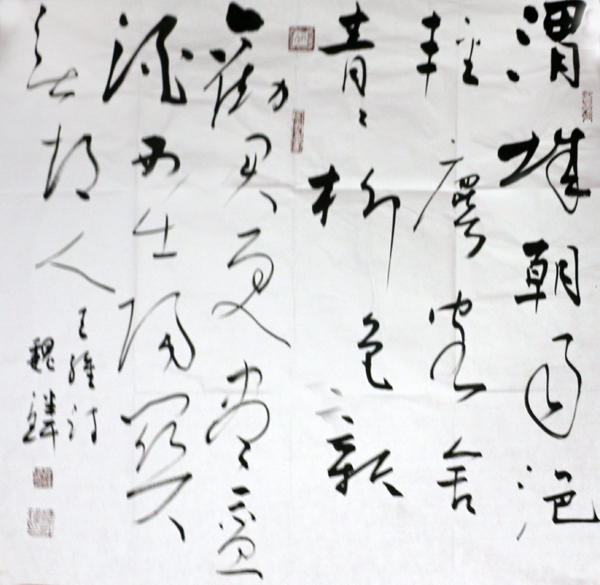 渭城朝雨浥
輕塵客舍
青〻柳色新
勸君更尽一盃
酒西出陽關
無故人
王維詩
魏